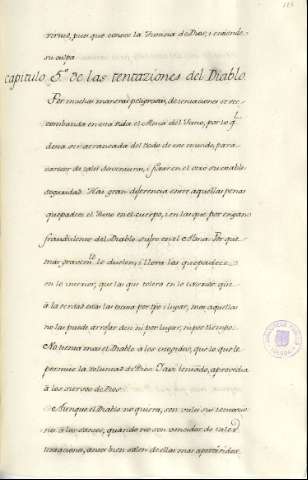 pues que conoce la Justicia de Dios, i entiende
su culpa
capitulo 5.º De las tentaziones del Diablo.
Por muchas maneras peligrosas, de tentaciones es
combatida en esta vida el Alma del Justo, por lo q.l
de ser arrancada del todo de este mundo, para
carecer de tales desventuras, i estar en el otro
seguridad. Mas gran diferencia entre aquellas penas
que padece el Justo en el cuerpo, i en las que por engaño
fraudulento del Diablo sufre en el Alma. Por que
mas gravem.te le duelen, i llora las que padece
en lo interior, que las que tolera en lo
la verdad estas las por tpo i lugar, mas aquellas
no las puede arrojar de si ni por lugar, ni por tiempo.
No tienta mas el Diablo á los de lo que le
permite la voluntad de Dios. I assi tentando, aprovecha
á los siervos de Dios.
Aunque el Diablo no quiera, son utiles sus tentacio
nes á los santos, quando no son vencidos de tales
tentaciones, antes bien salen de ellas mas aprovechados.